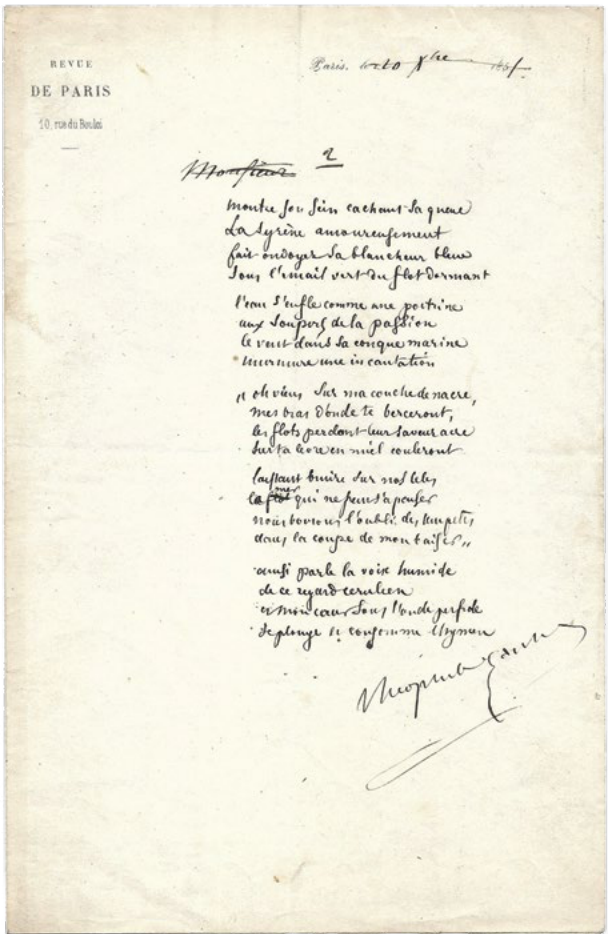 REVUE
DE PARIS
10, rue du Bouloi
Paris, le
Monsieur 2
montre son sein cachant sa queue
La syrène amoureusement
fait ondoyer sa blancheur bleue
sous l'email vert du flot dormant
l'eau s'enfle comme une poitrine
aux soupirs de la passion
le vent dans sa conque marine
murmure une incantation
" oh viens sur ma couche de nacre,
mes bras d'onde te berceront,
les flots perdant leur saveur acre
sur ta levre en miel couleront
laissant bruire sur nos têtes
la flot mer qui ne peut s'apaiser
nous boirons l'oubli des tempetes
dans la coupe de mon baiser "
ainsi parle la voix humide
de ce regard ceruleen
et mon cœur sous l'onde perfide
se plonge et consomme l'hymen
Theophile Gautier